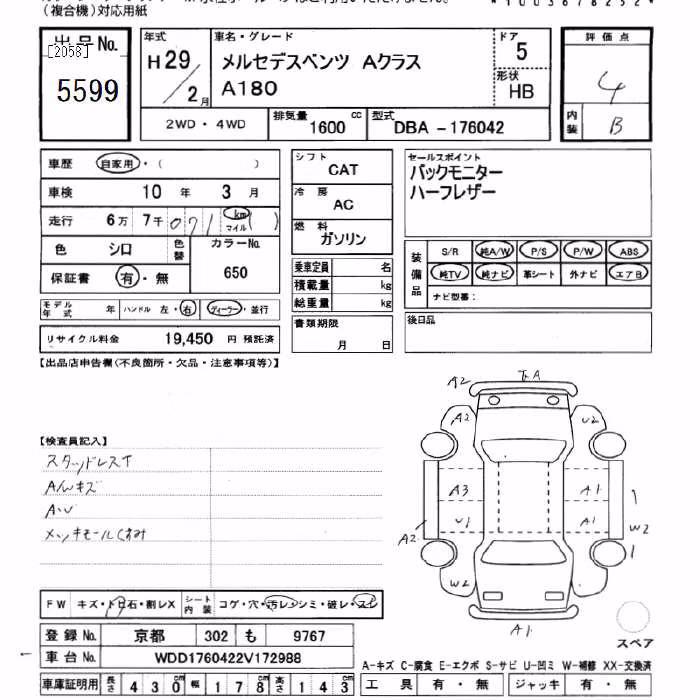 (複合機)対応用紙
出品No.
[2058]
5599
年式
H29/2月
車名・グレード
メルセデスベンツ Aクラス
A180
ドア
5
形状
HB
評価点
4
内装
B
2WD・4WD
排気量
1600 cc
型式
DBA -176042
車歴 自家用・( )
車検 10年 3月
走行 6万 7千 071 km マイル ( )
色 シロ
色替
カラーNo.
650
保証書 有・無
モデル年式 年
ハンドル 左・右
ディーラー・並行
リサイクル料金 19,450 円 預託済
シフト
CAT
冷房
AC
燃料
ガソリン
乗車定員 名
積載量 kg
総重量 kg
書類期限
月 日
セールスポイント
バックモニター
ハーフレザー
装備品
S/R 純A/W P/S P/W ABS
純TV 純ナビ 革シート 外ナビ エアB
ナビ型番:
後日品
【出品店申告欄(不良箇所・欠品・注意事項等)】
【検査員記入】
スタッドレスT
A/Wキズ
A・U
メッキモールくすみ
A2
A2
U2
A3
A1
U1
A1
A2
W2
W2
A1
スペア
FW キズ・トビ石・割レX
シート内装 コゲ・穴・汚レ・シミ・破レ・スレ
登録No. 京都 302 も 9767
車台No. WDD1760422V172988
車庫証明用 長さ 430cm 幅 178cm 高さ 143cm
A-キズ C-腐食 E-エクボ S-サビ U-凹ミ W-補修 XX-交換済
工具 有・無 ジャッキ 有・無